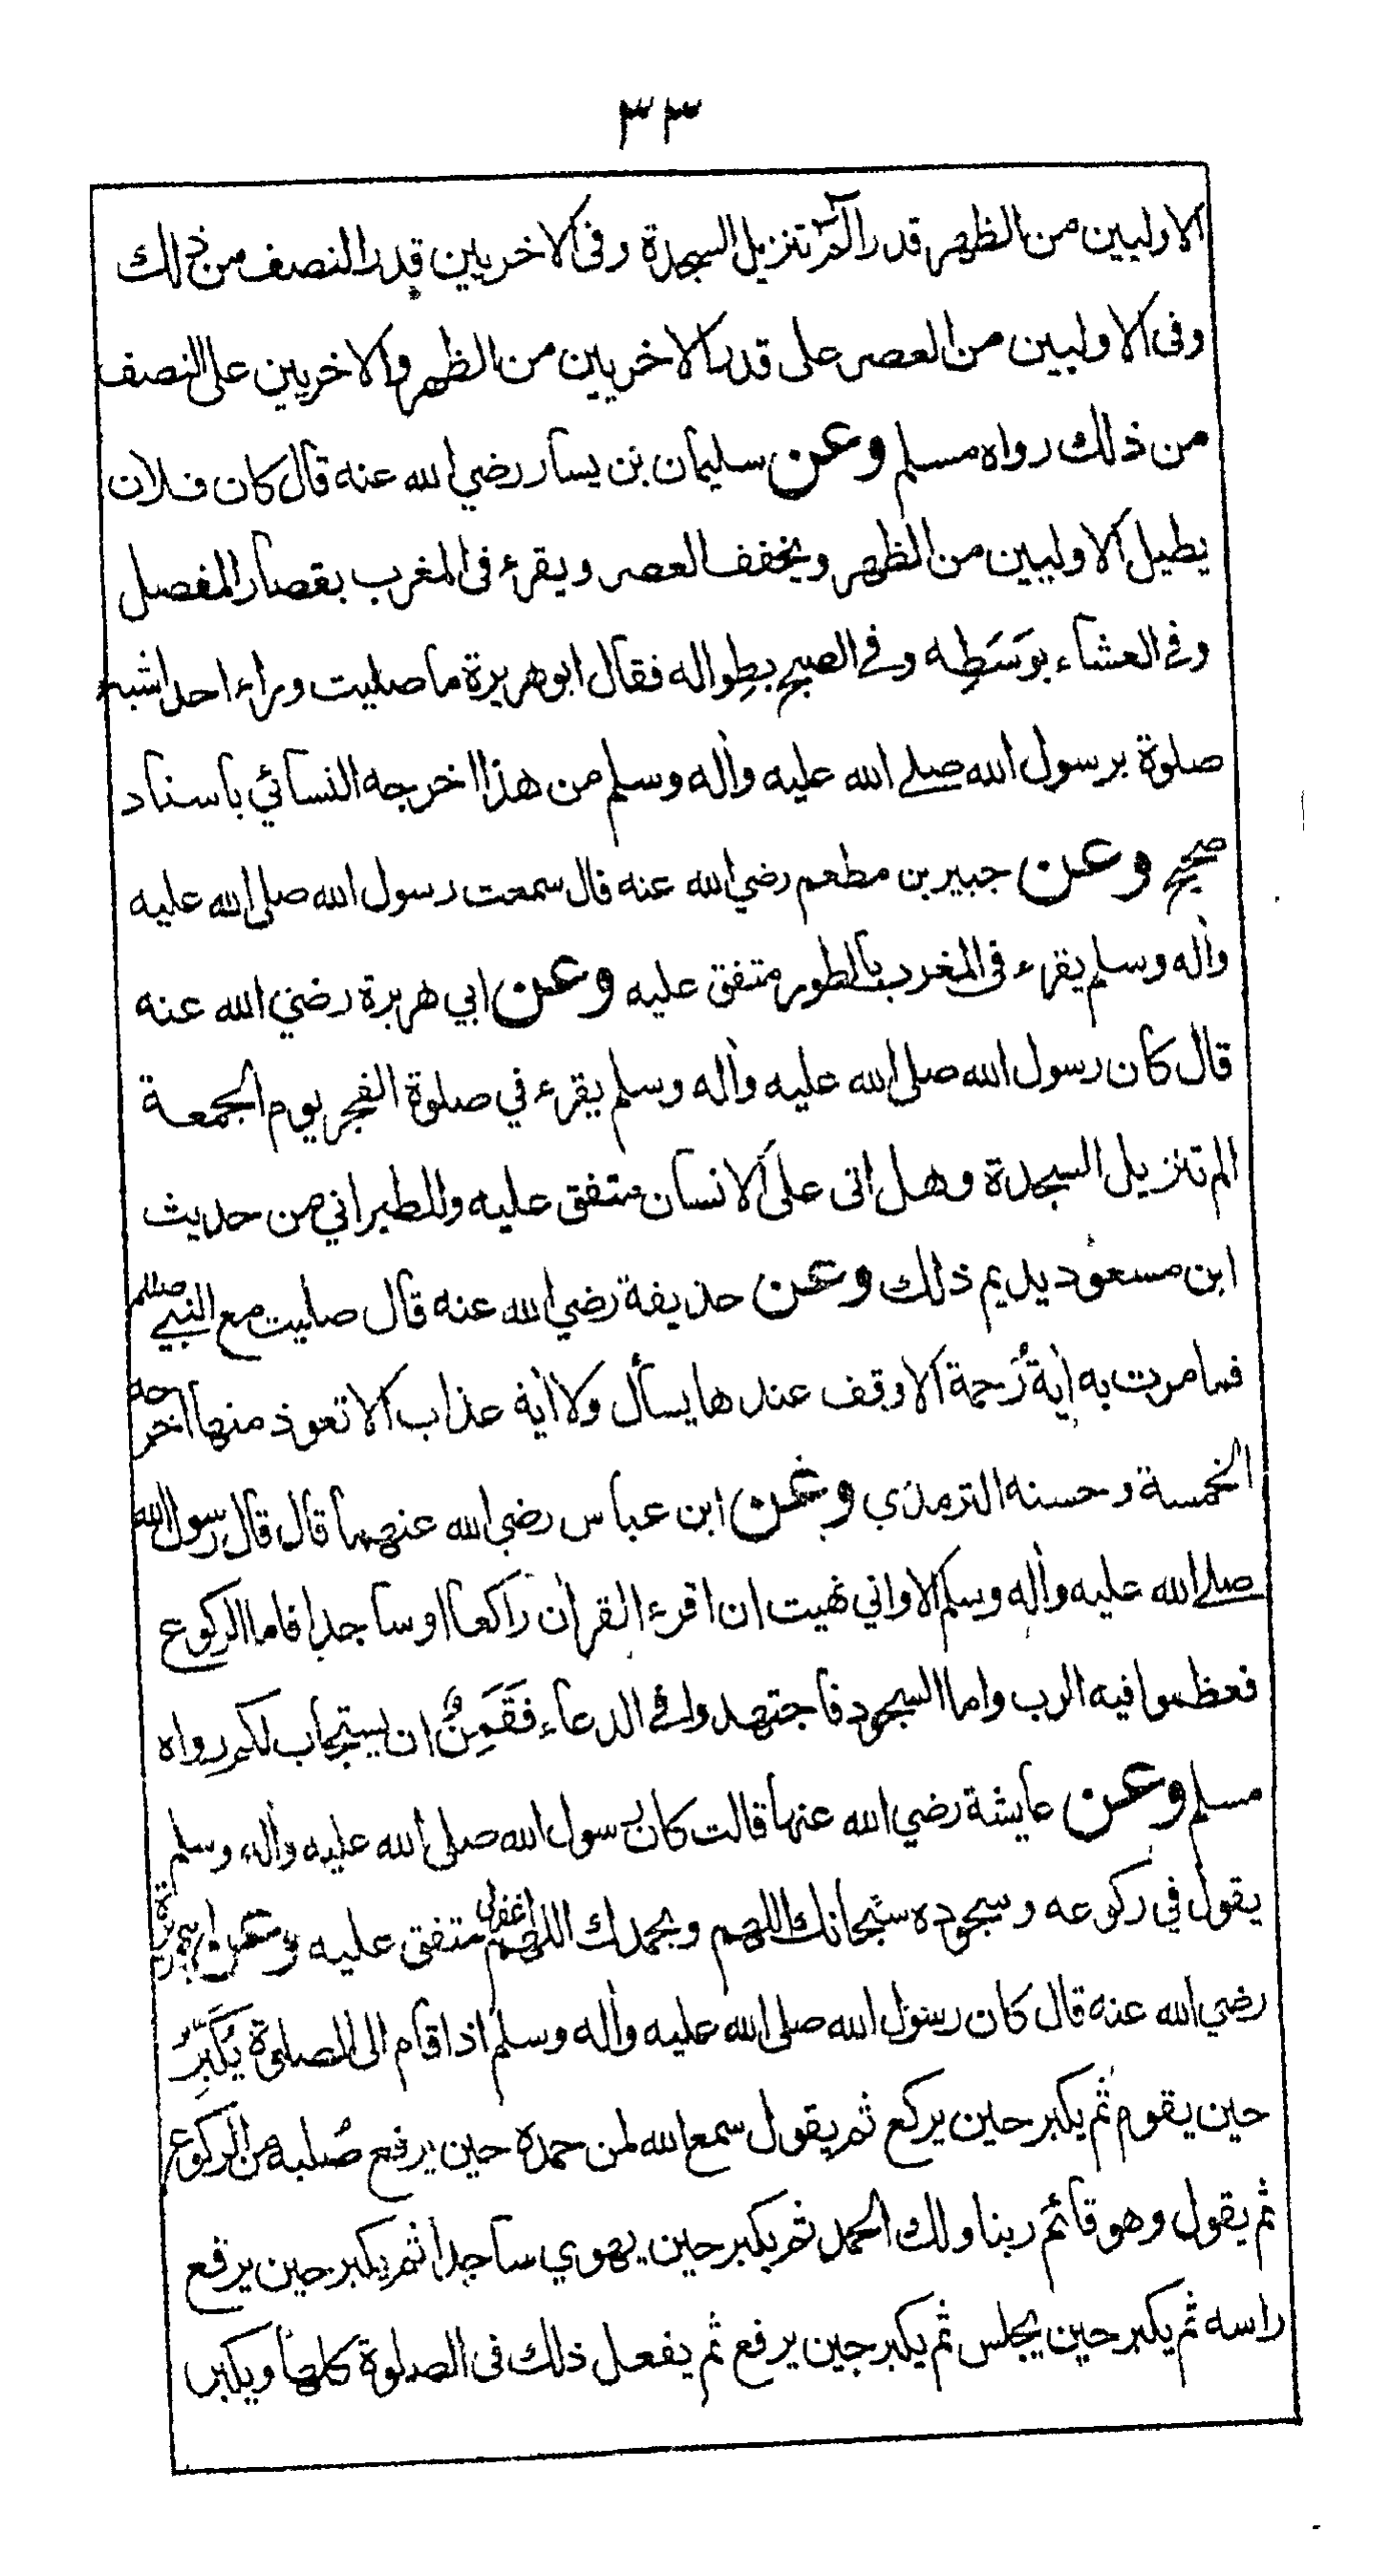 ٣٣
الاوليين من الظهر قدر الٓمّٓ تنزيل السجدة وفى الاخريين قدر النصف من ذلك
وفى الاوليين من العصر على قدر الاخريين من الظهر والاخريين على النصف
من ذلك رواه مسلم وعن سليمان بن يسار رضي الله عنه قال كان فلان
يطيل الاوليين من الظهر ويخفف العصر ويقرء فى المغرب بقصار المفصل
وفي العشاء بوَسَطِه وفي الصبح بطِواله فقال ابوهريرة ما صليت وراء احد اشبه
صلوة برسول الله صلے الله عليه واٰله وسلم من هذا اخرجه النسائي باسناد
صحيح وعن جبير بن مطعم رضي الله عنه قال سمعت رسول الله صلى الله عليه
واٰله وسلم يقرء فى المغرب بالطور متفق عليه وعن ابي هريرة رضي الله عنه
قال كان رسول الله صلى الله عليه واٰله وسلم يقرء في صلوة الفجر يوم الجمعة
الم تنزيل السجدة وهل اتى على الانسان متفق عليه وللطبراني من حديث
ابن مسعود يديم ذلك وعن حذيفة رضي الله عنه قال صليت مع النبي صللم
فما مرت به اٰية رَحمة الا وقف عندها يسأل ولا اٰية عذاب الا تعوذ منها اخرجه
الخمسة وحسنه الترمذي وعن ابن عباس رضي الله عنهما قال قال رسول الله
صلے الله عليه واٰله وسلم الا واني نهيت ان اقرء القراٰن راكعا او ساجدا فاما الركوع
فعظموا فيه الرب واما السجود فاجتهدوا في الدعاء فَقَمِنٌ ان يستجاب لكم رواه
مسلم وعن عايشة رضي الله عنها قالت كان رسول الله صلى الله عليه واٰله وسلم
يقول في ركوعه وسجوده سبحانك اللهم وبحمدك اللهم اغفرلى متفق عليه وعن ابي هريرة
رضي الله عنه قال كان رسول الله صلى الله عليه واٰله وسلم اذا قام الى الصلوة يُكَبِّرُ
حين يقوم ثم يكبر حين يركع ثم يقول سمع الله لمن حمده حين يرفع صُلبه من الركوع
ثم يقول وهو قائم ربنا ولك الحمد ثم يكبر حين يهوي ساجدا ثم يكبر حين يرفع
راسه ثم يكبر حين يجلس ثم يكبر حين يرفع ثم يفعل ذلك فى الصلوة كلها ويكبر